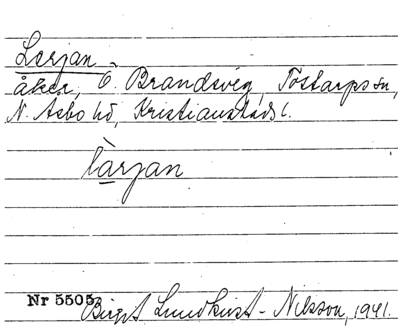 Lerjan
åker, Ö. Brandsvig, Tostarps sn,
N. Åsbo hd, Kristianstads l.
larjan
Nr 5505. Birgit Lundkvist-Nilsson, 1941.